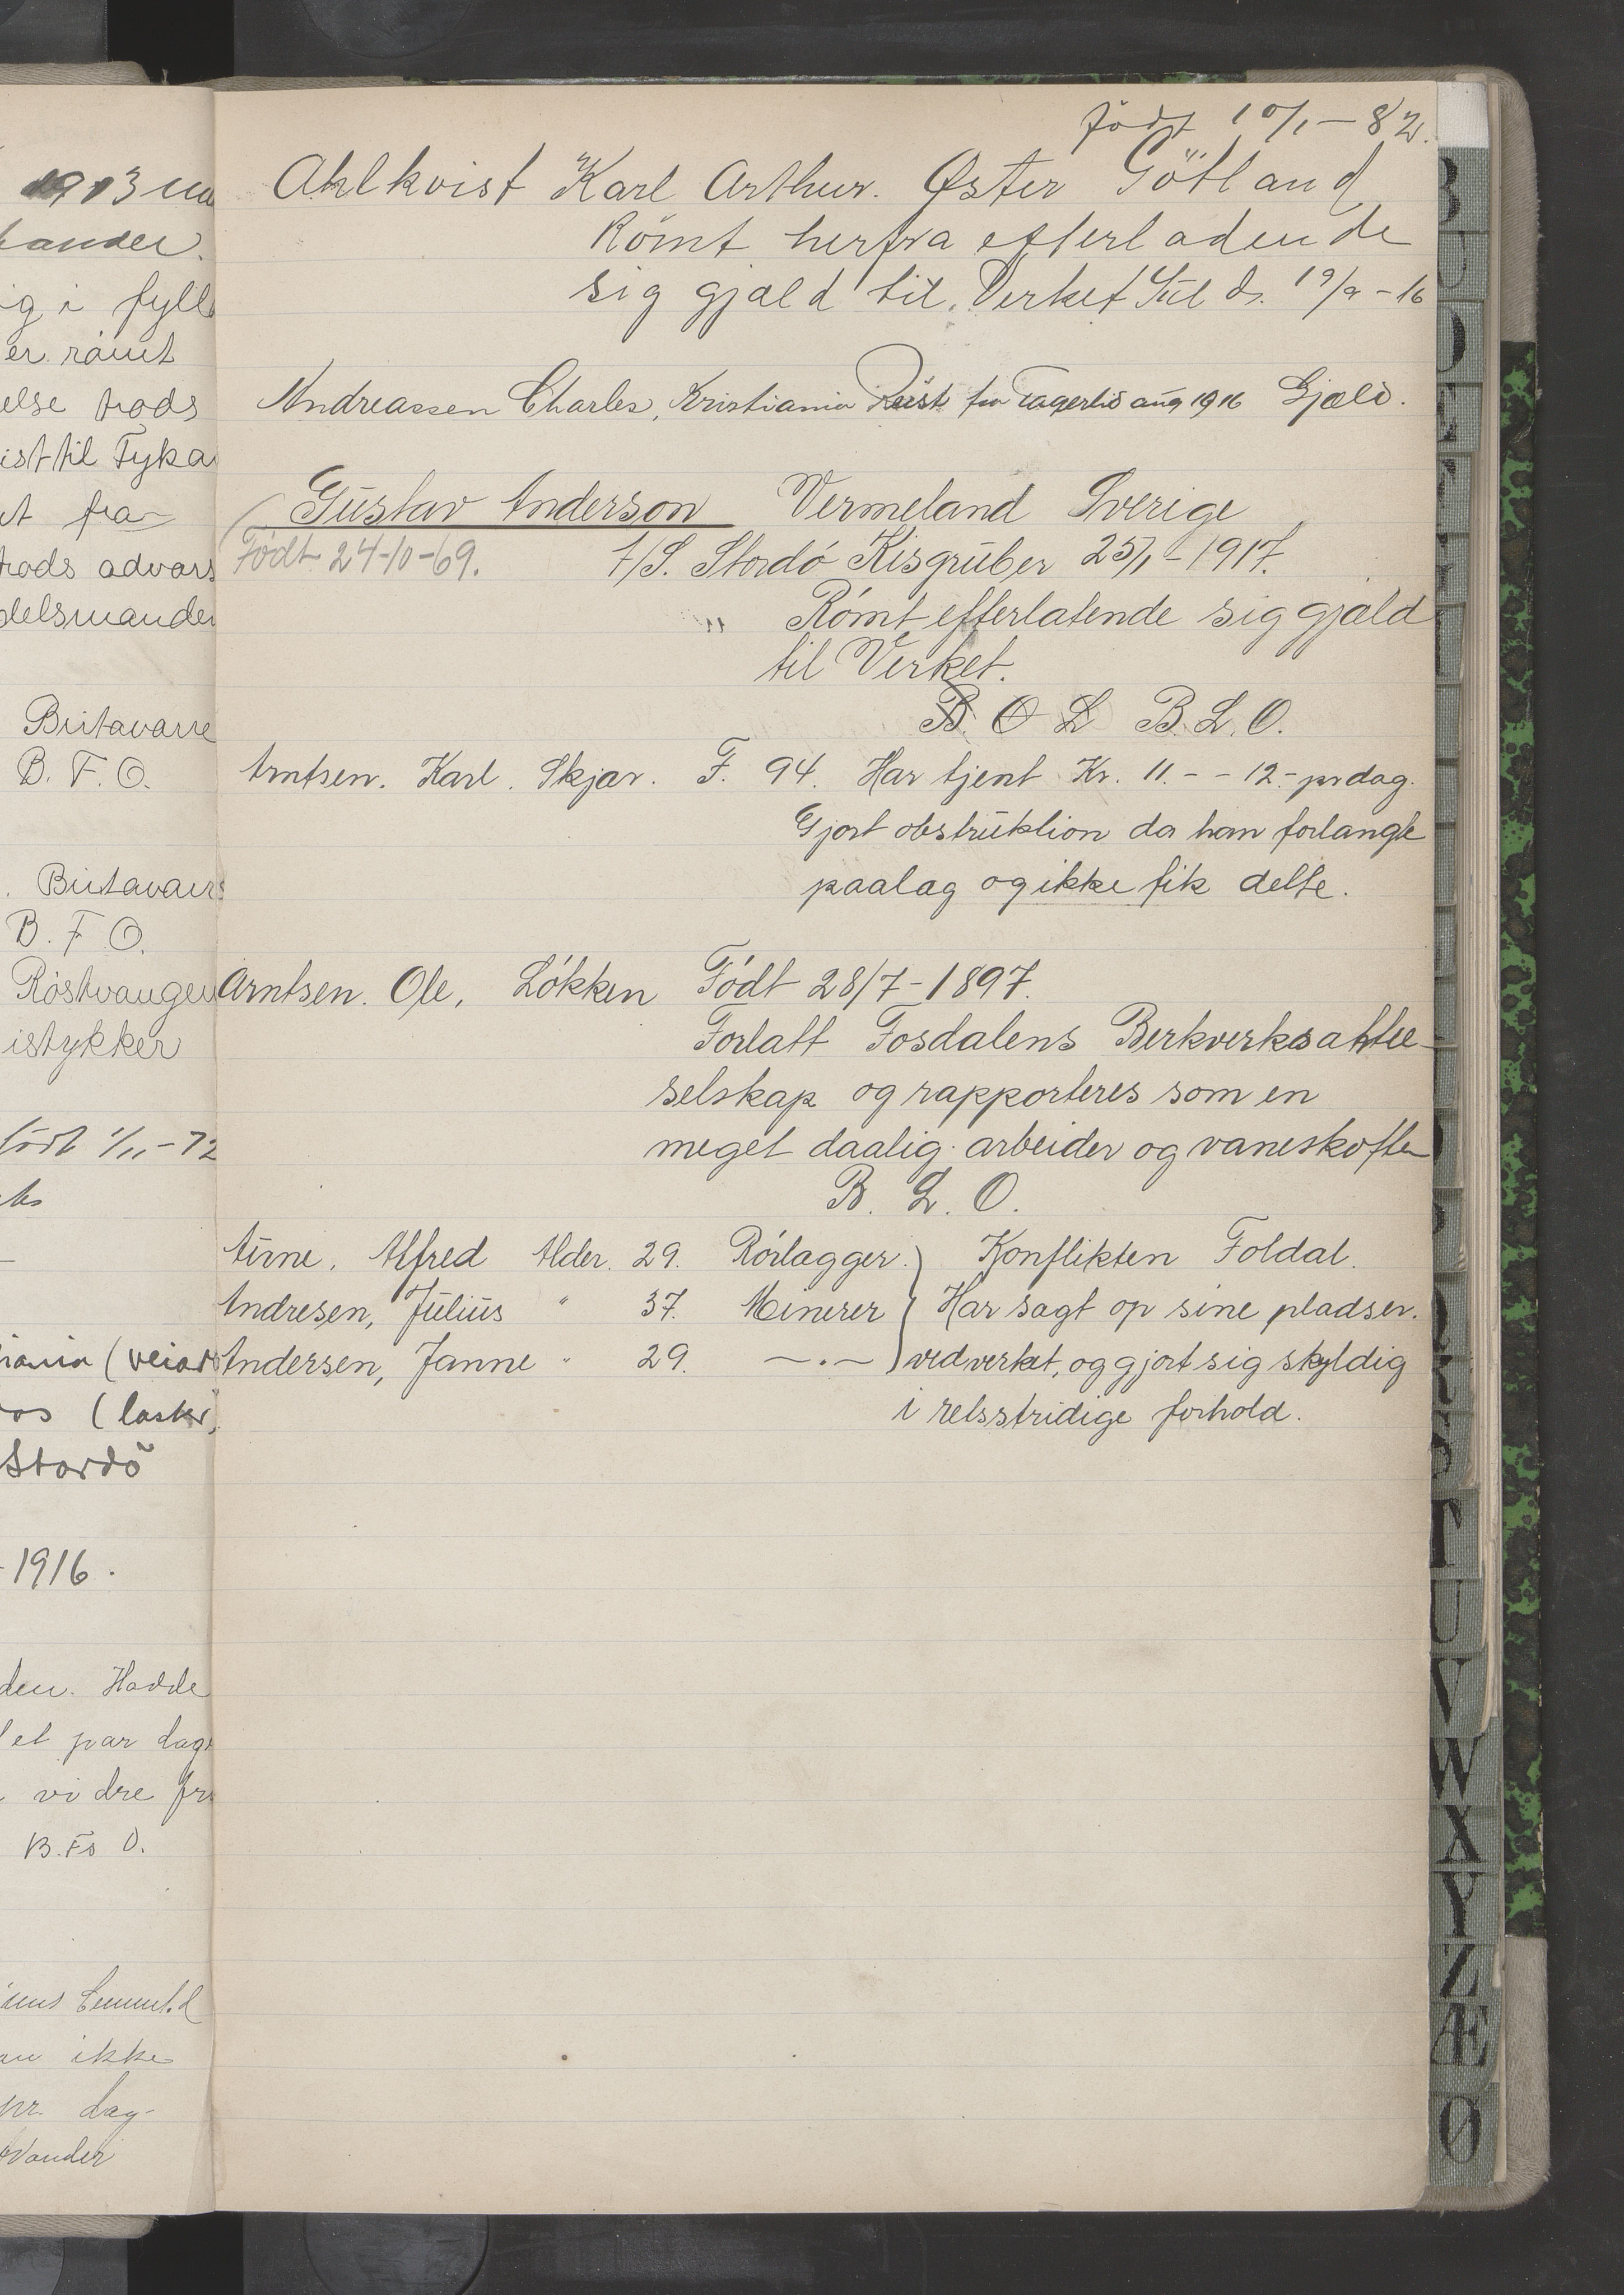 1903
hander.
ig i fyll
er römt
else trods
ist til Fyka
et fra
trods advars
delsmander
Britavarre
B. F. O.
Britavarre
B. F. O.
Röstvangen
istykker
född 1/11-72
(veiar
os (lasker)
Stordö
-1916.
den. Hadde
et par dage
vidre fra
B. Fs O.
an ikke
pr. dag-
født 10/1-82.
Ahlkvist Karl Arthur. Øster Götland
Römt herfra efterladende
sig gjæld til Verket Sul ds. 19/9-16
Andreassen Charles, Kristiania Reist fra Fagerlid aug 1916 Gjæld.
Gustav Anderson Vermeland Sverige
Födt 24-10-69. A/S. Stordö Kisgruber 25/1-1917.
" Römt efterlatende sig gjæld
til Verket.
B. O L B. L. O.
Arntsen. Karl. Skjær. F. 94. Har tjent Kr. 11.- - 12.- pr dag.
Gjort obstruktion da han forlangte
paalag og ikke fik dette.
Arntsen. Ole, Lökken Födt 28/7-1897.
Forlatt Fosdalens Berkverksaktie-
selskap og rapporteres som en
meget daalig arbeider og vaneskofter
B. L. O.
Aune, Alfred Alder. 29. Rörlægger. ) Konflikten Foldal.
Andresen, Julius " 37. Minerer ( Har sagt op sine pladser.
Andersen, Janne " 29. —"— ) ved verket, og gjort sig skyldig
i retsstridige forhold.
B
D
T
U
V
W
X
Y
Z
Æ
Ø